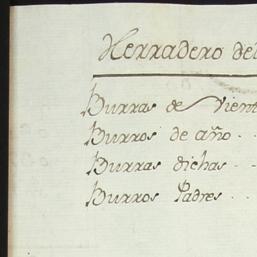 Herradero del
Burras de Vient
Burros de año - -
Burras dichas - -
Burros Padres - -